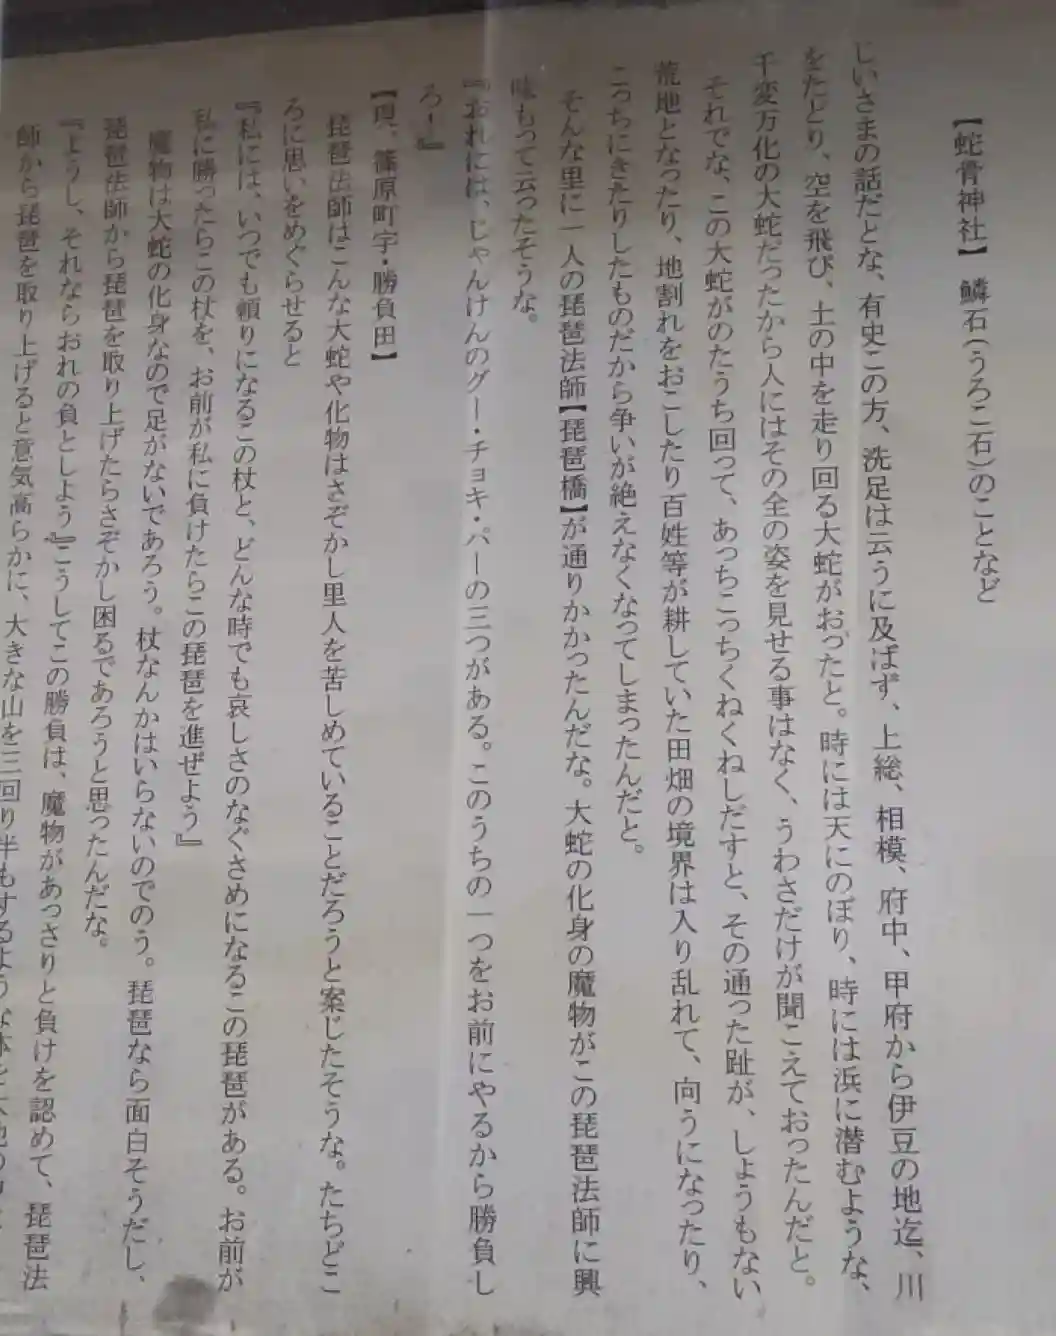 【蛇骨神社】　鱗石(うろこ石)のことなど
じいさまの話だとな、有史この方、洗足は云うに及ばず、上総、相模、府中、甲府から伊豆の地迄、川
をたどり、空を飛び、土の中を走り回る大蛇がおったと。時には天にのぼり、時には浜に潜むような、
千変万化の大蛇だったから人にはその全の姿を見せる事はなく、うわさだけが聞こえておったんだと。
それでな、この大蛇がのたうち回って、あっちこっちくねくねしだすと、その通った趾が、しょうもない
荒地となったり、地割れをおこしたり百姓等が耕していた田畑の境界は入り乱れて、向うになったり、
こっちにきたりしたものだから争いが絶えなくなってしまったんだと。
そんな里に一人の琵琶法師【琵琶橋】が通りかかったんだな。大蛇の化身の魔物がこの琵琶法師に興
味もって云ったそうな。
『おれには、じゃんけんのグー・チョキ・パーの三つがある。このうちの一つをお前にやるから勝負し
ろ！』
【現、篠原町字・勝負田】
琵琶法師はこんな大蛇や化物はさぞかし里人を苦しめていることだろうと案じたそうな。たちどこ
ろに思いをめぐらせると
『私には、いつでも頼りになるこの杖と、どんな時でも哀しさのなぐさめになるこの琵琶がある。お前が
私に勝ったらこの杖を、お前が私に負けたらこの琵琶を進ぜよう』
魔物は大蛇の化身なので足がないであろう。杖なんかはいらないのでのう。琵琶なら面白そうだし、
琵琶法師から琵琶を取り上げたらさぞかし困るであろうと思ったんだな。
『ようし、それならおれの負としよう』こうしてこの勝負は、魔物があっさりと負けを認めて、琵琶法
師から琵琶を取り上げると意気高らかに、大きな山を三回り半もするような体を